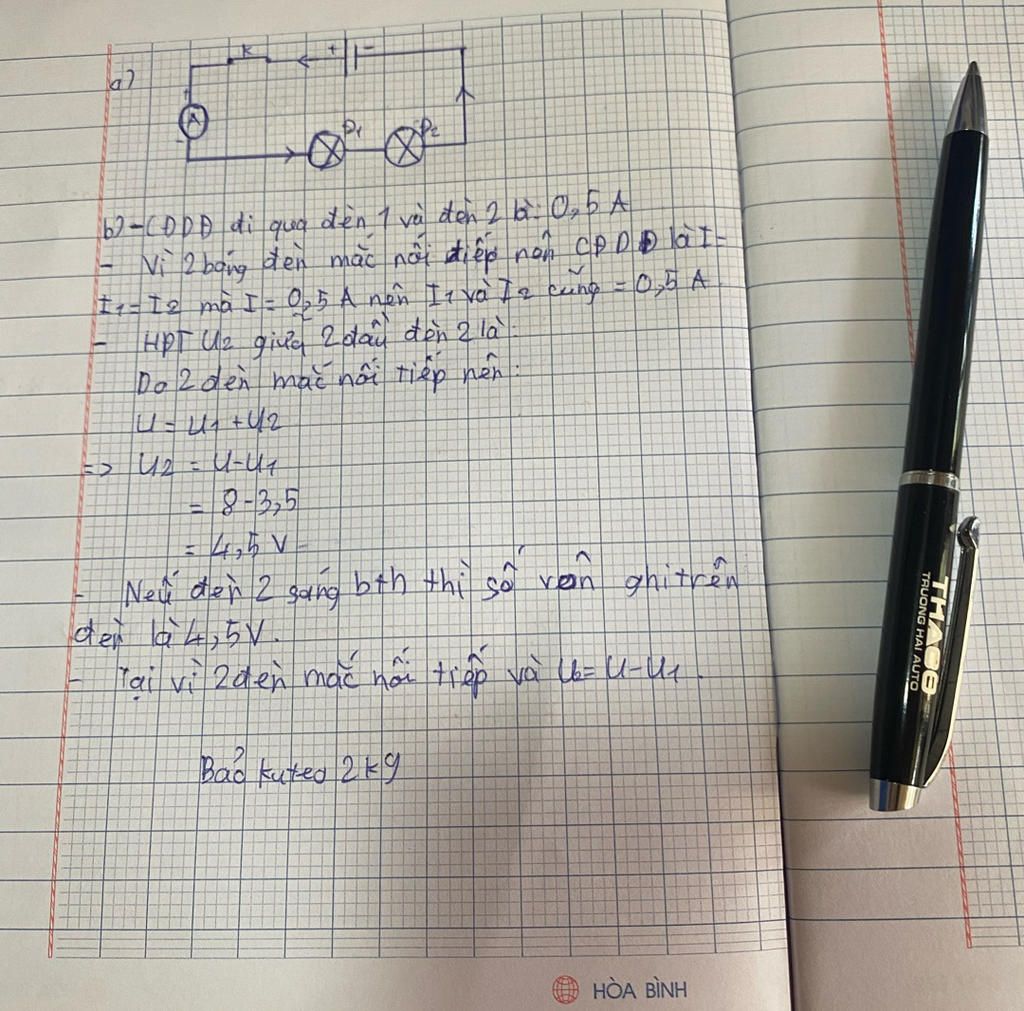 a)
K
+ -
A
Đ1
Đ2
b) - CĐDĐ đi qua đèn 1 và đèn 2 là: 0,5 A
- Vì 2 bóng đèn mắc nối tiếp nên CĐDĐ là I =
I1 = I2 mà I = 0,5 A nên I1 và I2 cũng = 0,5 A
- HĐT U2 giữa 2 đầu đèn 2 là:
Do 2 đèn mắc nối tiếp nên:
U = U1 + U2
=> U2 = U - U1
= 8 - 3,5
= 4,5 V
- Nếu đèn 2 sáng bth thì số vôn ghi trên
đèn là 4,5V.
- Tại vì 2 đèn mắc nối tiếp và U2 = U - U1.
Bảo kuteo 2k9
HÒA BÌNH
THACO
TRUONG HAI AUTO